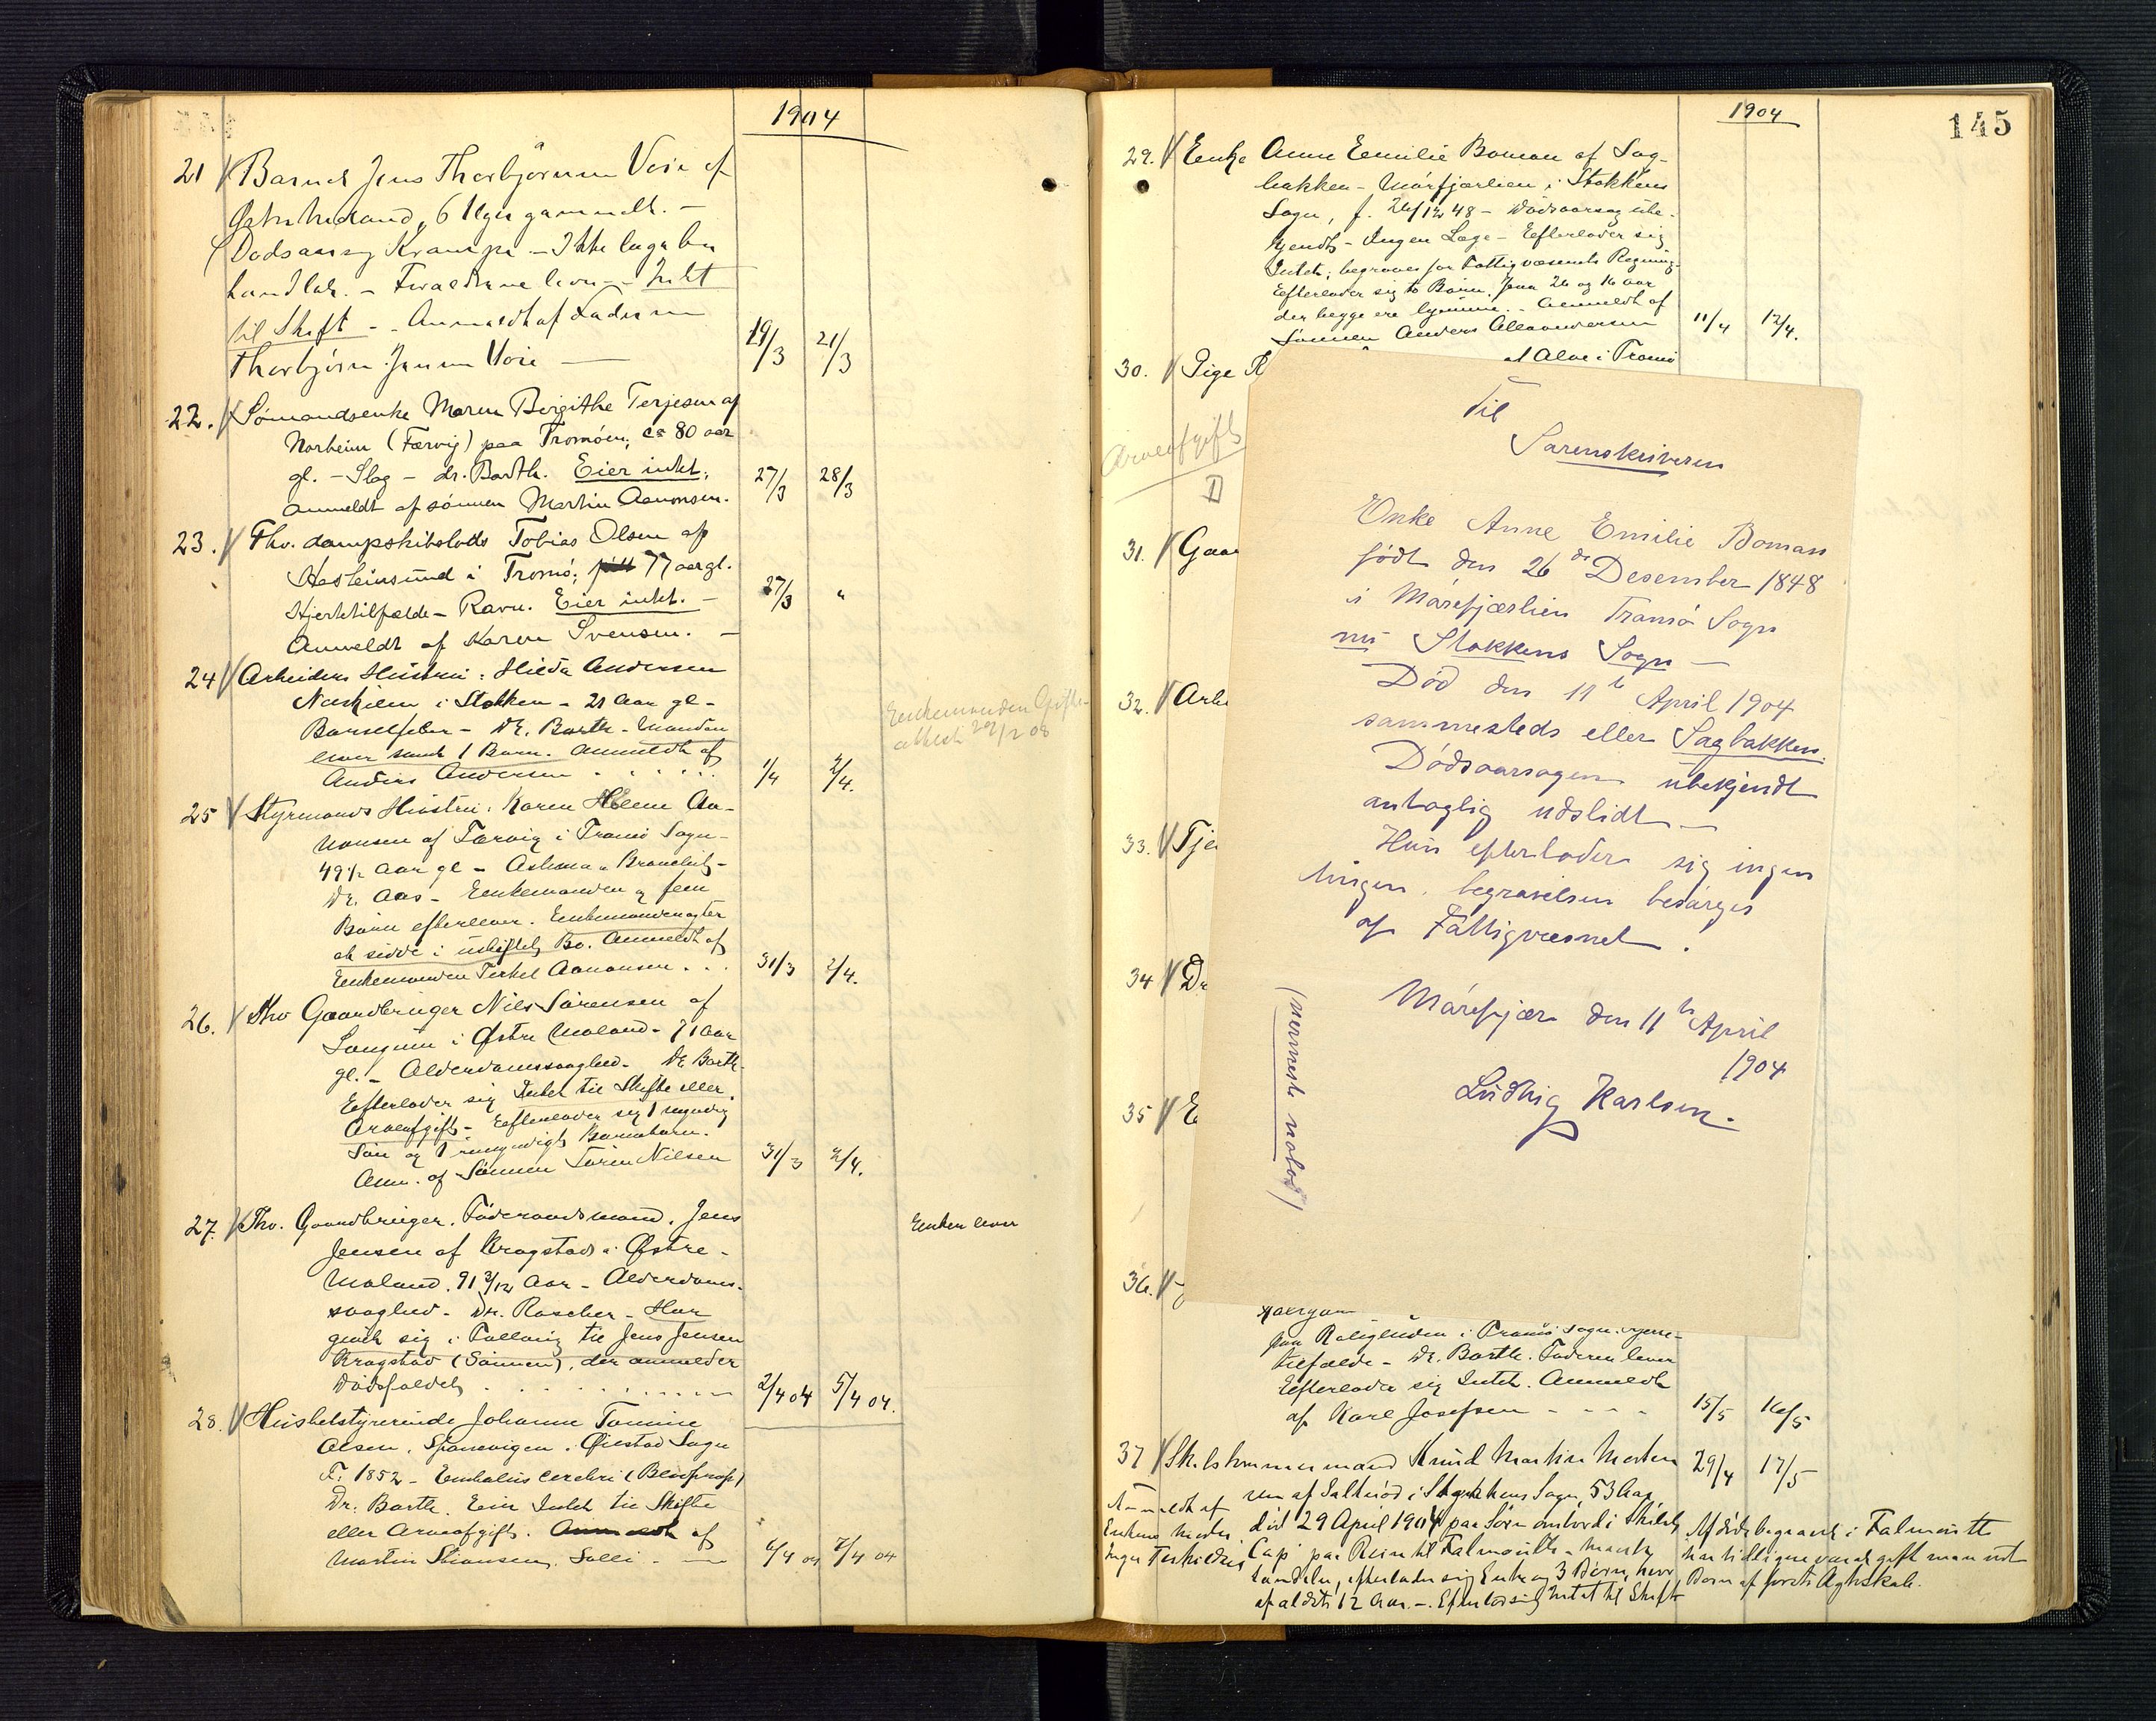 1904
21 Barnet Jens Thorbjørnsen Voie af
Østre Moland, 6 Uger gammelt. –
Dødsaarsag Krampe – Ikke læge be-
handlet. – Forældrene lever – Intet
til Skift – Anmeldt af Faderen
Thorbjørn Jensen Voie — 19/3 21/3
22. Sømandsenke Maren Birgithe Terjesen af
Norheim (Færvig) paa Tromøen, ca 80 aar
gl. – Slag – dr. Barth. Eier intet,
anmeldt af sønnen Martin Aanonsen. 27/3 28/3
23. Fhv. dampskibslods Tobias Olsen af
Hastensund i Tromø, 77 aar gl.
Hjertetilfælde – Ravn. Eier intet. – 27/3 "
Anmeldt af Karen Svensen. –
24 Arbeiders Hustru: Hilda Andersen
Neskilen i Stokken – 21 Aar gl –
Barselfeber – Dr. Barth – Manden
lever samt 1 Barn. Anmeldt af
Anders Andersen . . . . . 1/4 2/4.
Enkemanden Gifte-
attest 29/2 08
25 Styrmands Hustru: Karen Helene Aa-
nonsen af Færvig i Tromø Sogn –
49 1/2 Aar gl – Asthma & Bronchit –
Dr. Aas – Enkemanden og fem
Børn efterlever. Enkemanden agter
at sidde i uskiftet Bo. Anmeldt af
Enkemanden Terkel Aanonsen . . . 31/3 2/4.
26. Fhv Gaardbruger Niels Sørensen af
Longum i Østre Moland – 71 Aar
gl. – Alderdomssvaghed – Dr Barth –
Efterlader sig Intet til Skifte eller
Arveafgift – Efterlader sig 1 myndig
Søn og 1 umyndigt Barnebarn.
Anm. af Sønnen Søren Nilsen 31/3 2/4.
27. Fhv. Gaardbruger, Føderaadsmand, Jens
Jensen af Kragstad i Østre –
Moland. 91 3/12 Aar – Alderdoms-
svaghed – Dr. Rascher – Har
givet sig i Follaug til Jens Jensen
Kragstad (Sønnen), der anmelder
Dødsfaldet . . . . . . . . 2/4 04 5/4 04.
Enken lever
28. Husbestyrerinde Johanne Tomine
Olsen, Spanevigen, Øiestad Sogn
F. 1852 – Embolus cerebri (Blodprop)
Dr. Barth. Eier Intet til Skifte
eller Arveafgift. Anmeldt af
Martin Stiansen, Solli – 6/4 04 7/4 04
1904
145
29. Enke Anne Emilie Boman af Sag-
bakken – Mørfjærlien i Stokkens
Sogn, f. 26/12 48 – Dødsaarsag ube-
kjendt – Ingen Læge – Efterlader sig
Intet, begraves for Fattigvæsenets Regning.
Efterlader sig to Børn paa 26 og 16 aar
der begge ere lysmme. – Anmeldt af
Sønnen Anders Alexandersen 11/4 12/4.
30. Pige R
af Alve i Tromø
Arveafgift
31. Gaar
32. Arbe
33. Tje
34 Dr
35 E
36.
Til
Sorenskriveren
Enke Anne Emilie Boman
født den 26 de Desember 1848
i Mørefjærlien Tromø Sogn
nu Stokkens Sogn —
Død den 11te April 1904
sammesteds eller Sagbakken.
Dødsaarsagen ubekjendt
antaglig udslidt —
Hun efterlader sig ingen
tingen. begravelsen besørges
af Fattigvæsnet .
Mørefjær den 11te April
1904
Ludvig Karlsen.
(nærmeste nabo)
paa Roligheden i Tromø Sogn. Hjerte-
tilfælde – Dr. Barth. Faderen lever
Efterlader sig Intet. Anmeldt
af Karl Josefsen – – – – 15/5 16/5
37 Skibstømmermand Knud Martin Morten-
sen af Saltrød i Stokkens Sogn, 53 Aar, 29/4 17/5
død 29 April 1904 paa Søen ombord i Skibet
Cap paa Reise til Falmouth –
efterlader sig Enke og 3 Børn, hvor-
af ældste 12 Aar. – Efterlod sig Intet til Skifte
Anmeldt af
Enkens Moder
Inger Terkildsen
Afdøde begravet i Falmouth
har tidligere været gift men uden
Børn af første Ægteskab.